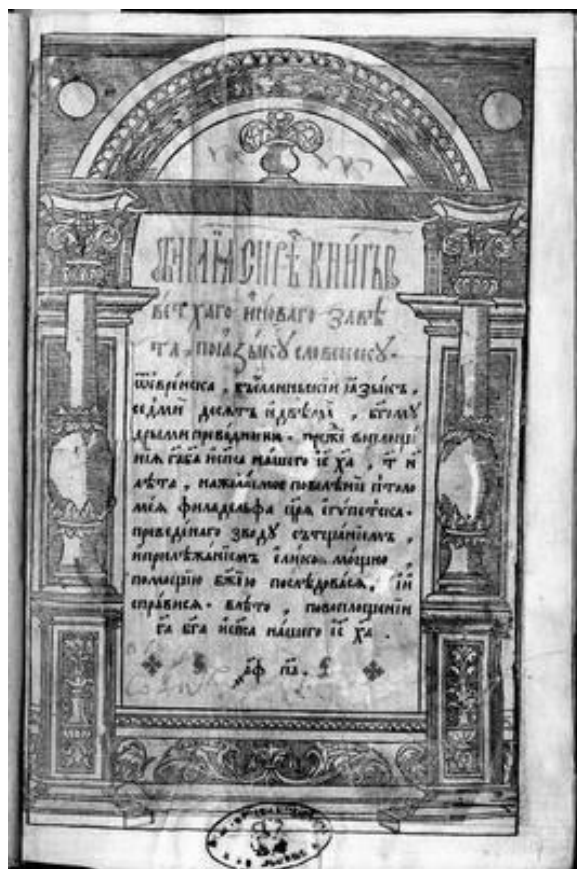 БИБЛІА СИРѢЧЬ КНИГЫ
ВЕТХАГО И НОВАГО ЗАВѢ
ТА, ПО ІАЗЫКУ СЛОВЕНСКУ.
ѿ еврейска, въ еллиньскїи ꙗзыкъ,
седмїи десѧтъ и двѣмѧ, бг҃ому
дрыми преводники. преже воплоще
нїѧ га҃ ба҃ и сп҃са нашего іс҃ ха҃, т҃ и
лѣта, на желаемое повелѣнїе птоло
меѧ филаделфа цр҃ѧ египетска.
преведенаго зводу съ тщанїемъ,
и прилѣжанїемъ елико мощно,
помощїю бж҃їею послѣдовасѧ, и и
справисѧ. в лѣто, по воплощенїи
га҃ бг҃а и сп҃са нашего іс҃ ха҃.
҂аф па.